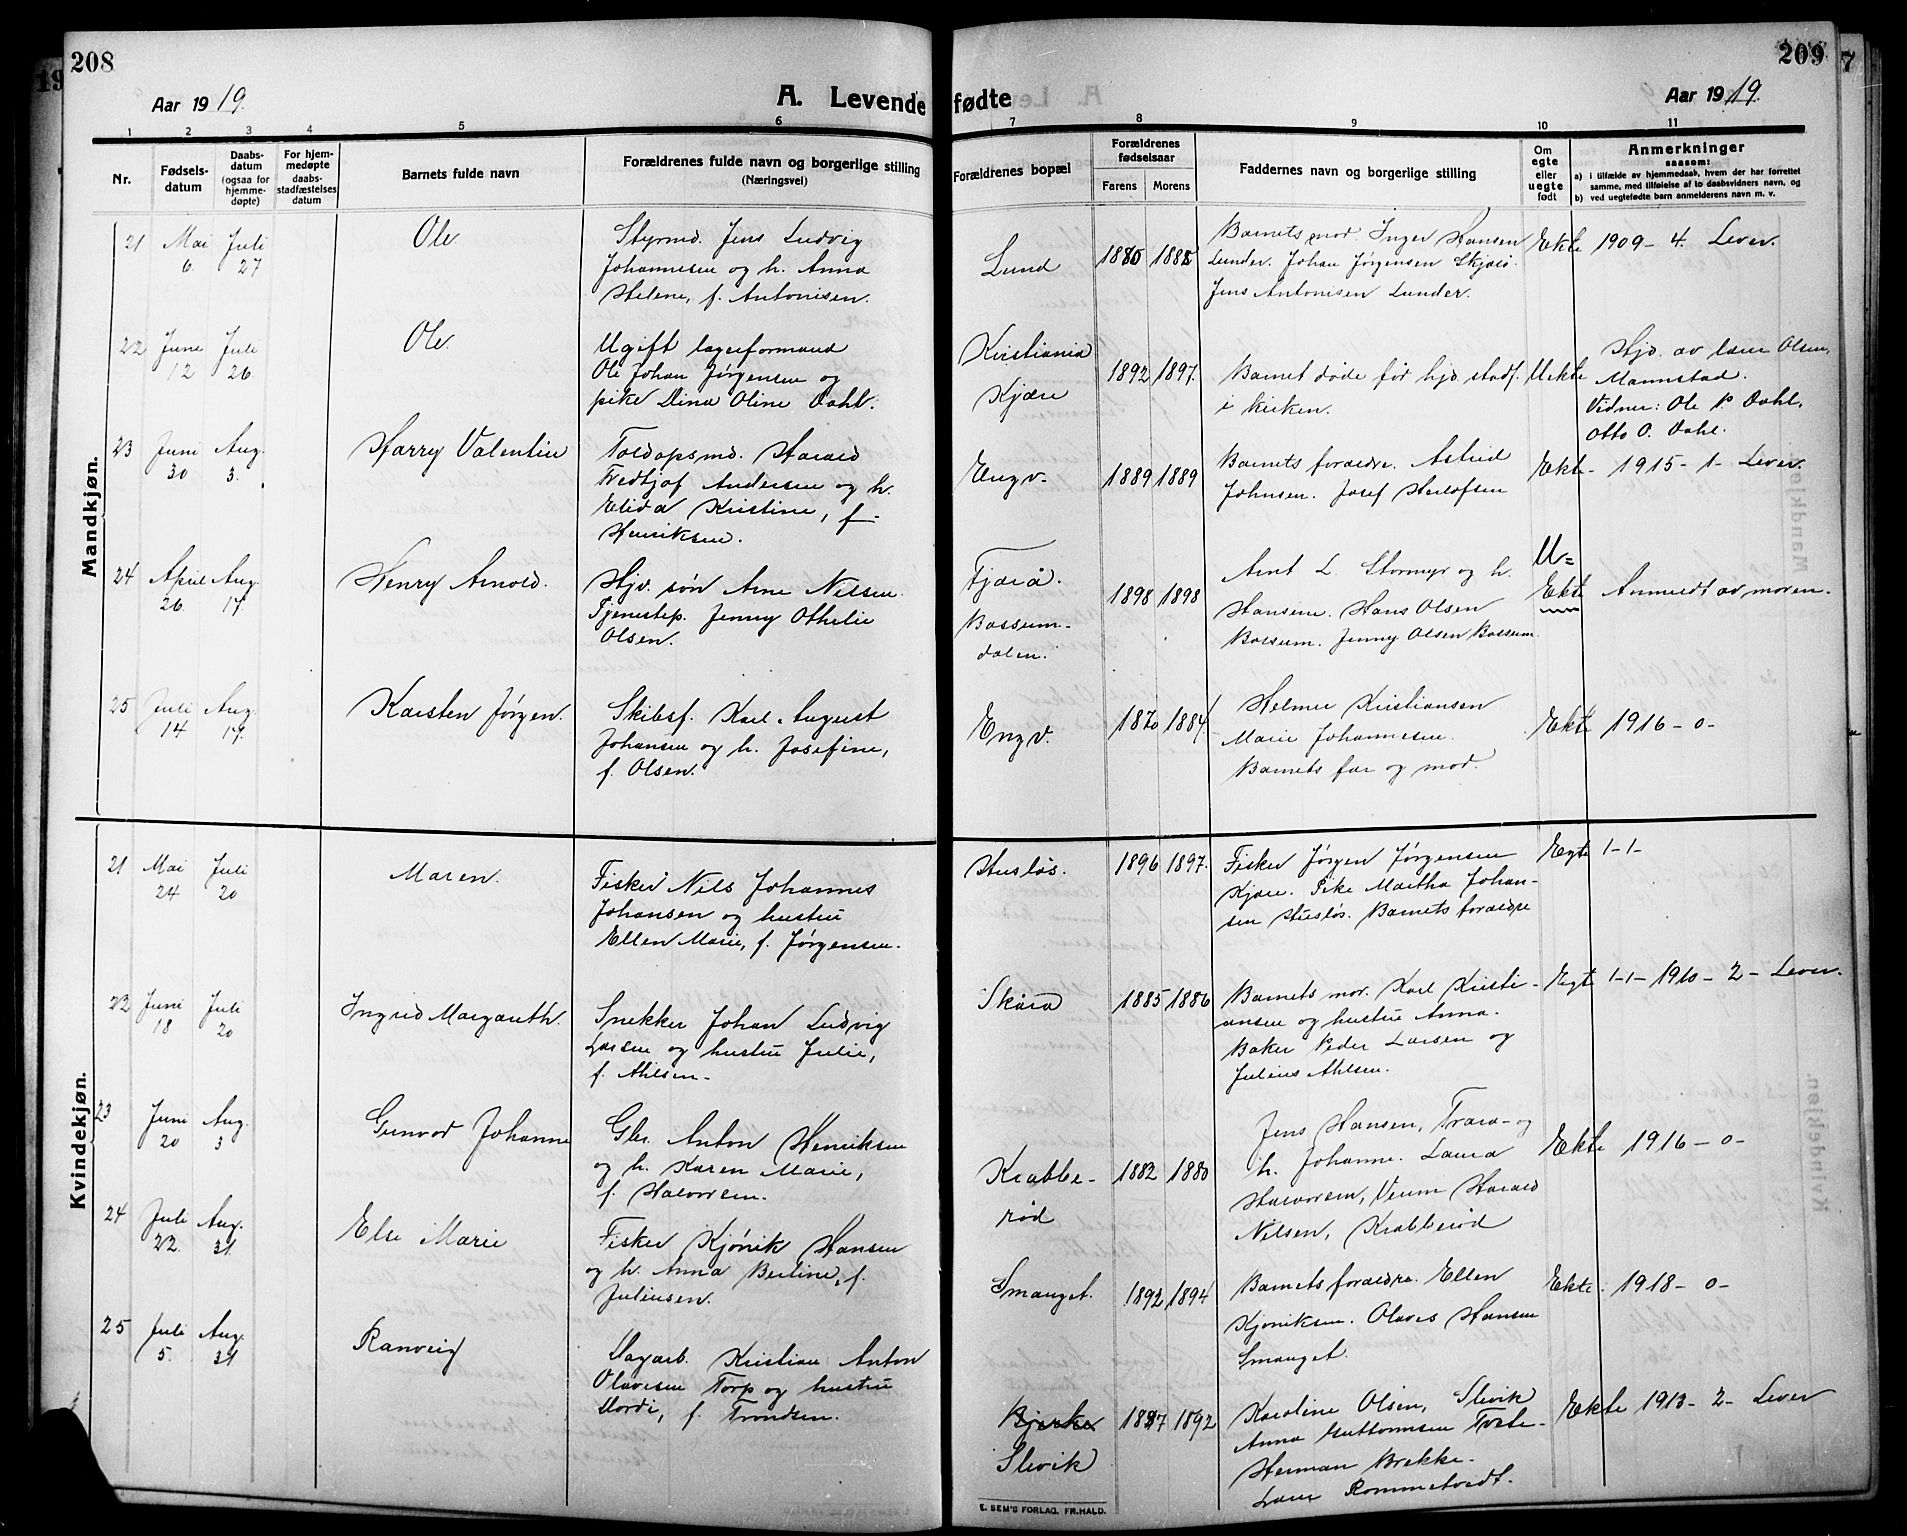 208
Aar 1919.
A. Levende
1 2 3 4 5 6
Nr.
Fødsels-
datum
Daabs-
datum
(ogsaa for
hjemme-
døpte)
For hjem-
medøpte
daabs-
stadfæstelses
datum
Barnets fulde navn
Forældrenes fulde navn og borgerlige stilling
(Næringsvei)
Mandkjøn.
21 Mai 6. Juli 27
Ole.
Styrmd. Jens Ludvig
Johannesen og h. Anna
Helene, f. Antonisen.
22 June 12 Juli 26.
Ole.
Ugift lagerformand
Ole Johan Jørgensen og
pike Dina Oline Dahl.
23 Juni 30 Aug. 3.
Harry Valentin
Toldopsmd. Harald
Fredtjof Andersen og h.
Elida Kristine, f.
Henriksen.
24 April 26. Aug. 17.
Henry Arnold.
Hjv. søn Arne Nilsen.
Tjenestep. Jenny Othelie
Olsen.
25 Juli 14 Aug. 17.
Karsten Jørgen.
Skibsf. Karl August
Johansen og h. Josefine,
f. Olsen.
Kvindekjøn.
21 Mai 24 Juli 20
Maren.
Fisker Nils Johannes
Johansen og hustru
Ellen Marie, f. Jørgensen.
22 Juni 18 Juli 20
Ingrid Margareth.
Snekker Johan Ludvig
Larsen og hustru Julie,
f. Ahlsen.
23 Juni 20 Aug. 3
Gunvor Johanne
Gbr. Anton Henriksen
og h. Karen Marie,
f. Halvorsen.
24 Juli 22. Aug. 31.
Else Marie
Fisker Kjønik Hansen
og h. Anna Bertine, f.
Juliussen.
25 Juli 5. Aug. 31
Ranveig
Dagarb. Kristian Anton
Olavesen Torp og hustru
Mordi, f. Trondsen.
209
fødte
Aar 1919.
7 8 9 10 11
Forældrenes bopæl
Forældrenes
fødselsaar
Farens Morens
Faddernes navn og borgerlige stilling
Om
egte
eller
uegte
født
Anmerkninger
saasom:
a) i tilfælde av hjemmedaab, hvem der har forrettet
samme, med tilføielse af to daabsvidners navn, og
b) ved uegtefødte barn anmelderens navn m. v.
Lund
1885
Barnets mor. Inger Hansen
Lunder. Johan Jørgensen Skjærø.
Jens Antonisen Lunder.
Ekte 1909 - 4. Lever.
Kristiania
Kjære
1892 1897.
Barnet døde før hjd. stadf.
i kirken.
Uekte
Hjd. av Olsen,
Mannstad.
Vidner: Ole P. Dahl.
Otto O. Dahl.
Engv.
1889 1889
Barnets foraldre. Astrid
Johnsen. Josef Herlofsen
Ekte - 1915 - 1 - Lever.
Fjærø.
Bossum-
dalen.
1898 1898
Arnt L. Stormyr og h.
Hansine. Hans Olsen
Bossum. Jenny Olsen Bossum.
U=
Ekte
Anmeldt av moren.
Engv.
1870 1884.
Helmer Kristiansen
Marie Johannesen.
Barnets far og mor.
Ekte 1916 - 0 -
Husløs.
1896 1897.
Fisker Jørgen Jørgensen
Kjære. Pike Martha Johan-
sen Husløs. Barnets foraldre
Egte 1-1-
Skåra
1885 1886
Barnets mor. Karl Kristi-
ansen og hustru Anna.
Baker Peder Larsen og
Julius Ahlsen.
Egte 1-1- 1910 - 2 - Lever.
Krabbe-
rød
1882 1880
Jens Hansen, Trara og
h. Johanne. Laura
Halvorsen, Verum Harald
Nilsen, Krabberød
Ekte 1916 - 0 -
Smauget.
1892 1894
Barnets foraldre. Ellen
Kjøniksen. Olaves Hansen
Smauget.
Ekte. 1918 - 0 -
Bjerke
Slevik
1887 1892
Karoline Olsen, Slevik
Anna Guttormsen
Herman Brekke.
Lars Rommetvedt.
Ekte 1913 - 2 - Lever
E. SEM'S FORLAG. FR.HALD.